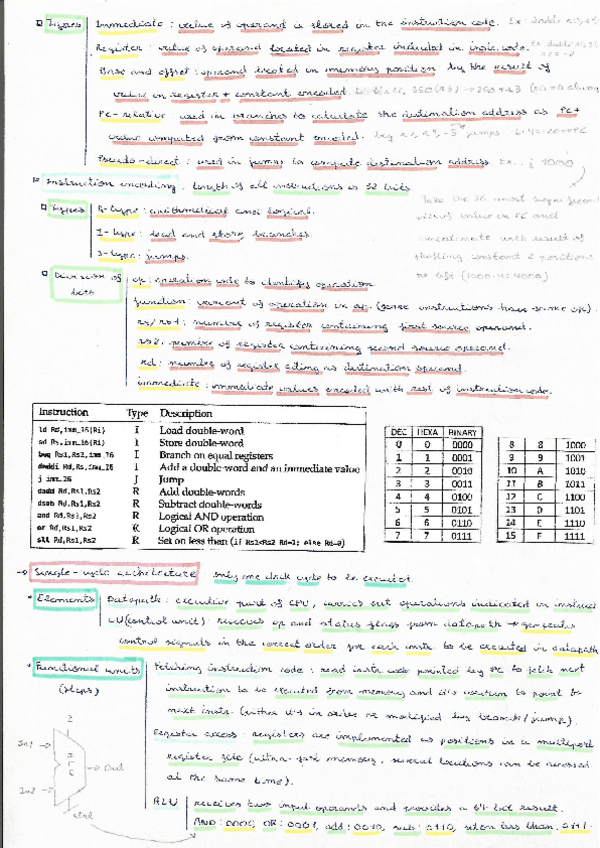 Types
Immediate : value of operand is stored in the instruction code.
Register : value of operand located in register included in instr. code.
Base and offset : operand located in memory position by the result of
value on register + constant encoded.
PC-relative used in branches to calculate the destination address as PC+
value computed from constant encoded.
Pseudo-direct : used in jumps to compute destination address. Ex: j 1000
Instruction encoding. length of all instructions is 32 bits
Types
R-type: arithmetical and logical.
I-type: load and store, branches.
J-type: jumps.
Take the 36 most significant
bits of value in PC and
immediate with result of
shifting constant 2 positions
to left (1000·4=4000)
Division of bits
op: operation code to identify operation
function: variant of operation in op. (some instructions have same op).
rs/rs1: number of register containing first source operand.
rs2: number of register containing second source operand.
rd: number of register acting as destination operand.
immediate: immediate values encoded with rest of instruction code.
Instruction Type Description
ld Rd,imm_16(Ri) I Load double-word
sd Rs,imm_16(Ri) I Store double-word
beq Rs1,Rs2,imm_16 I Branch on equal registers
daddi Rd,Rs,imm_16 I Add a double-word and an immediate value
j imm_26 J Jump
dadd Rd,Rs1,Rs2 R Add double-words
dsub Rd,Rs1,Rs2 R Subtract double-words
and Rd,Rs1,Rs2 R Logical AND operation
or Rd,Rs1,Rs2 R Logical OR operation
slt Rd,Rs1,Rs2 R Set on less than (if Rs1<Rs2 Rd=1; else Rd=0)
DEC HEXA BINARY
0 0 0000
1 1 0001
2 2 0010
3 3 0011
4 4 0100
5 5 0101
6 6 0110
7 7 0111
8 8 1000
9 9 1001
10 A 1010
11 B 1011
12 C 1100
13 D 1101
14 E 1110
15 F 1111
Single-cycle architecture only one clock cycle to be executed.
Elements
Datapath : executive part of CPU, carries out operations indicated in instruct
CU(control unit): receives op and status flags from datapath → generates
control signals in the correct order for each instr. to be executed in datapath
Functional units
(steps)
Fetching instruction code : read instr. code pointed by PC to fetch next
instruction to be executed from memory and it's written to point to
next instr. (either it's in order or modified by branch/jump).
Register access : registers are implemented as positions in a multiport
register file (ultra-fast memory, several locations can be accessed
at the same time).
ALU receives two input operands and provides a 64 bit result.
AND: 0000, OR: 0001, add: 0010, sub: 0110, set on less than: 0111.
In1
In2
ALU
Z
Out
ctrl